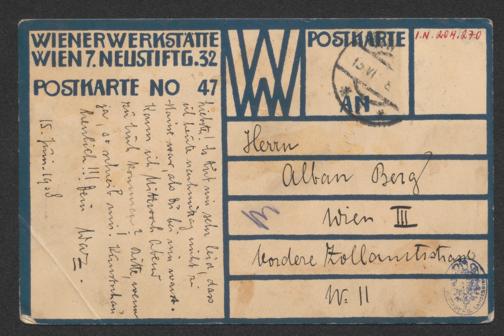 WIENER WERKSTÄTTE
WIEN 7. NEUSTIFTG. 32
POSTKARTE NO 47
POSTKARTE
I.N. 204.270
AN
15 VI
Herrn
Alban Berg
Wien III
Vordere Zollamtsstrasse
Nº 11
Liebste! Es tut mir sehr leid, dass
ich heute nachmittag nicht zu
Hause war, als Du bei mir warst.
Kann ich Mittwoch Abend
zu Euch kommen? Bitte, wenn
ja, so schreib mir.
Herrlich!!! Dein
15. Juni 1908